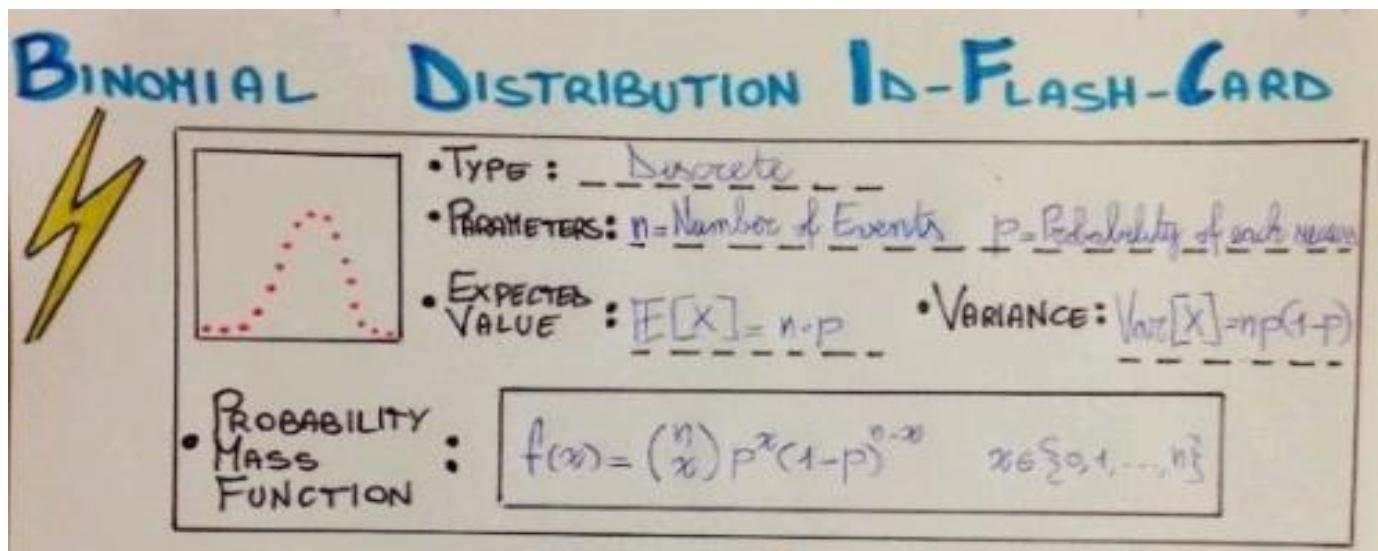 BINOMIAL DISTRIBUTION ID-FLASH-CARD
• TYPE: Discrete
• PARAMETERS: n=Number of Events p=Probability of each
• EXPECTED VALUE: E[X]= n·p • VARIANCE: Var[X]=np(1-p)
• PROBABILITY
MASS
FUNCTION : f(x)= (n x) p^x (1-p)^n-x x∈{0,1,...,n}